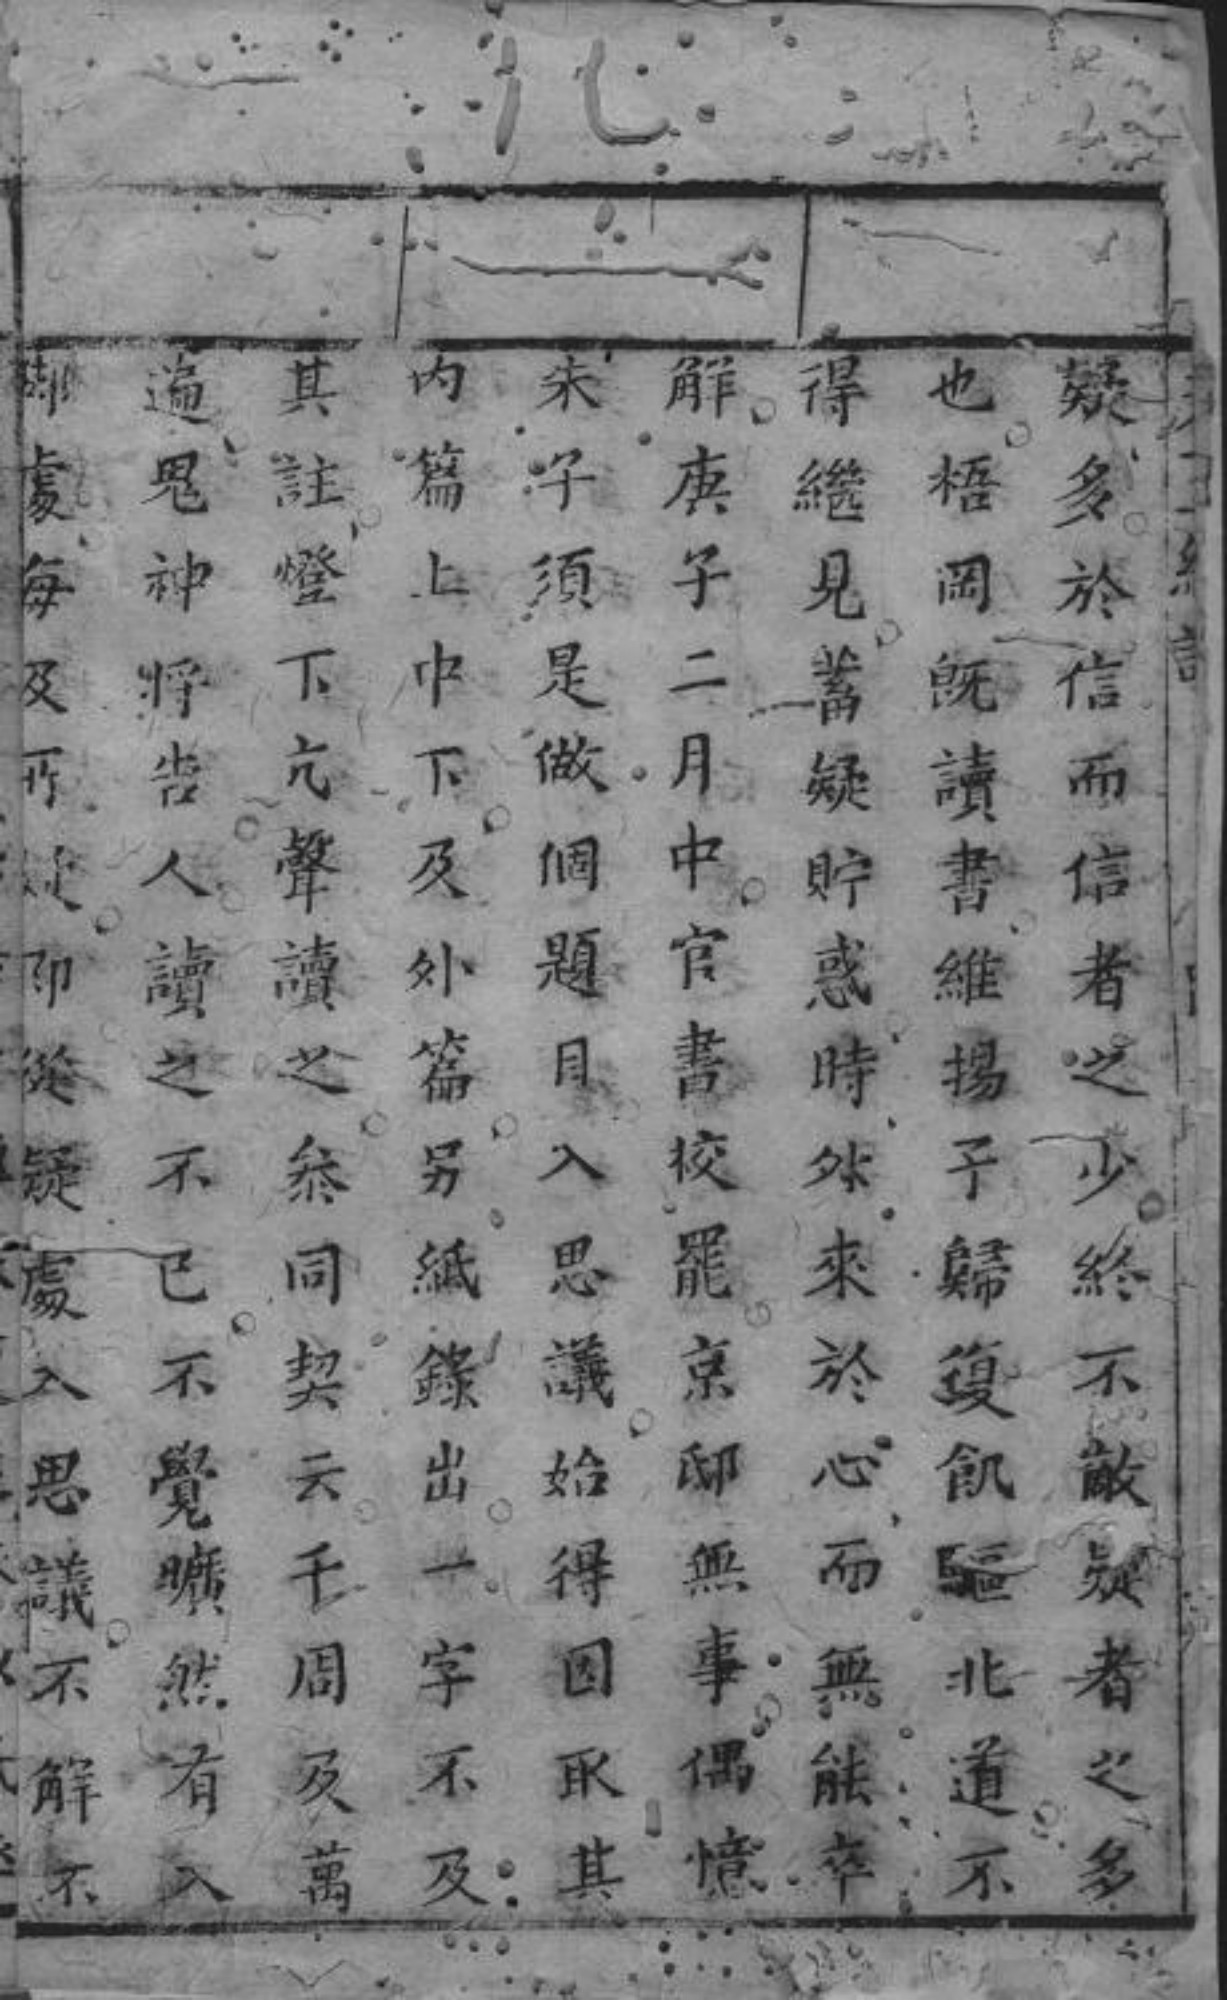 疑多於信而信者之少終不敵疑者之多
也梧岡旣讀書維揚子歸復飢驅北道不
得繼見蓄疑貯惑時然來於心而無能卒
解庚子二月中官書校罷京邸無事偶憶
朱子須是做個題目入思議始得因取其
内篇上中下及外篇另紙錄出一字不及
其註燈下亢聲讀之叅同契云千周及萬
遍鬼神將告人讀之不已不覺曠然有入
處每及所疑即從疑處入思議不解不